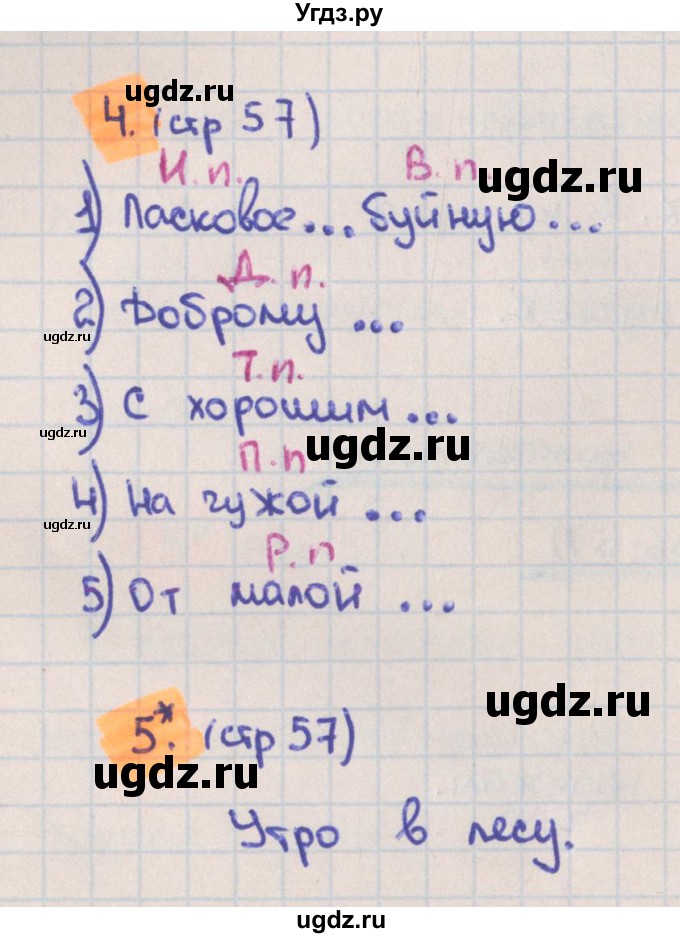 Угдз.ру
ugdz.ru
4. (стр 57)
И. п. В. п.
ugdz.ru
1) Ласковое... буйную...
Д. п.
2) Доброму ...
ugdz.ru
Т. п.
3) С хорошим...
ugdz.ru
ugdz.ru
П. п
4) На чужой ...
ugdz.ru
Р. п
5) От малой ...
ugdz.ru
ugdz.ru
5*. (стр 57)
ugdz.ru
Утро в лесу.
ugdz.ru
ugdz.ru
ugdz.ru